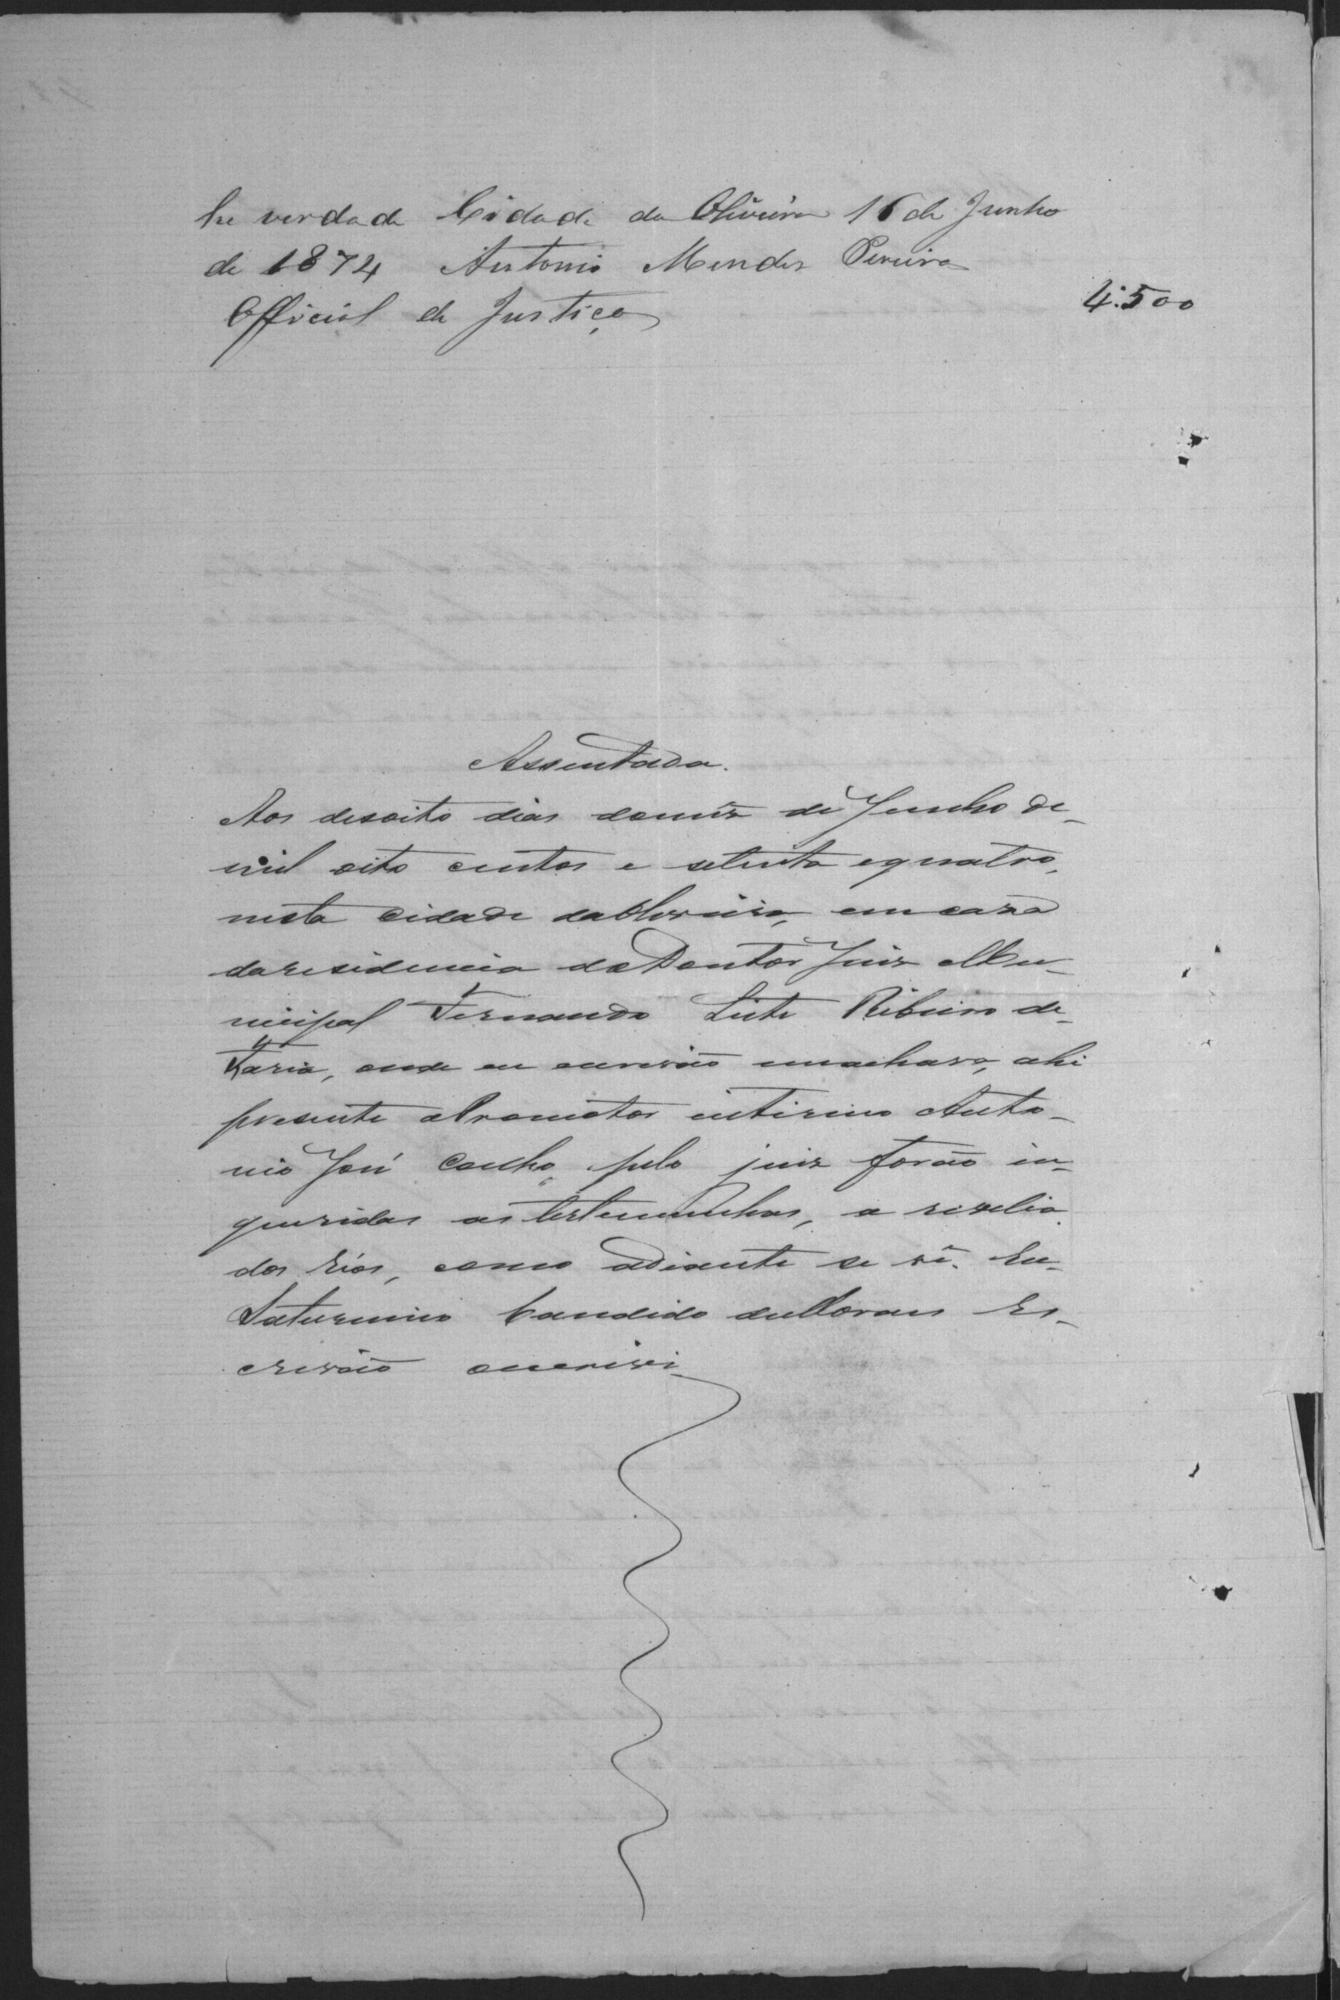 he verdade Cidade da Oliveira 16 de Junho
de 1874 Antonio Mendes Pereira
Official de Justiça
4:500
Assentada.
Aos desoito dias do mez de Junho de
mil oito centos e setenta e quatro,
nesta cidade da Oliveira, em casa
da residencia do Doutor Juiz Mu-
nicipal Fernando Leite Ribeiro de
Faria, onde eu escrivão me achava, ahi
presente o Promotor interino Anto-
nio José Coelho, pelo juiz forão in-
queridas as testemunhas, a revelia
dos réos, como adiante se vê. Eu
Saturnino Candido de Moraes Es-
crivão o escrivi